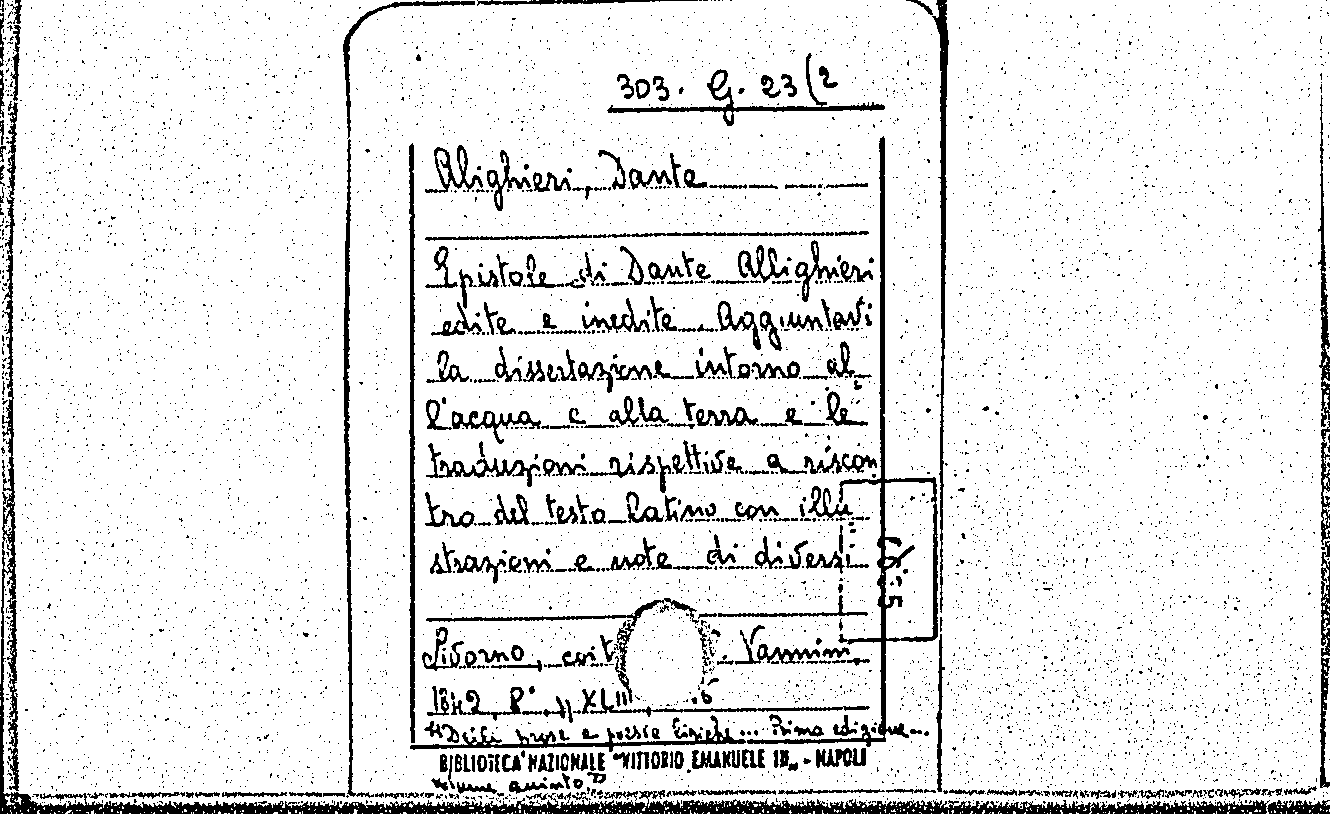 303. G. 23(2
Alighieri, Dante
Epistole di Dante Allighieri
edite e inedite. Aggiuntavi
la dissertazione intorno al
l'acqua e alla terra e le
traduzioni rispettive a riscon
tro del testo latino con illu
strazioni e note di diversi
Livorno, coi t . Vannini,
1842, 8°. pp XLIII,
"Delle prose e poesie liriche... Prima edizione...
BIBLIOTECA NAZIONALE "VITTORIO EMANUELE III„ - NAPOLI
volume quinto"